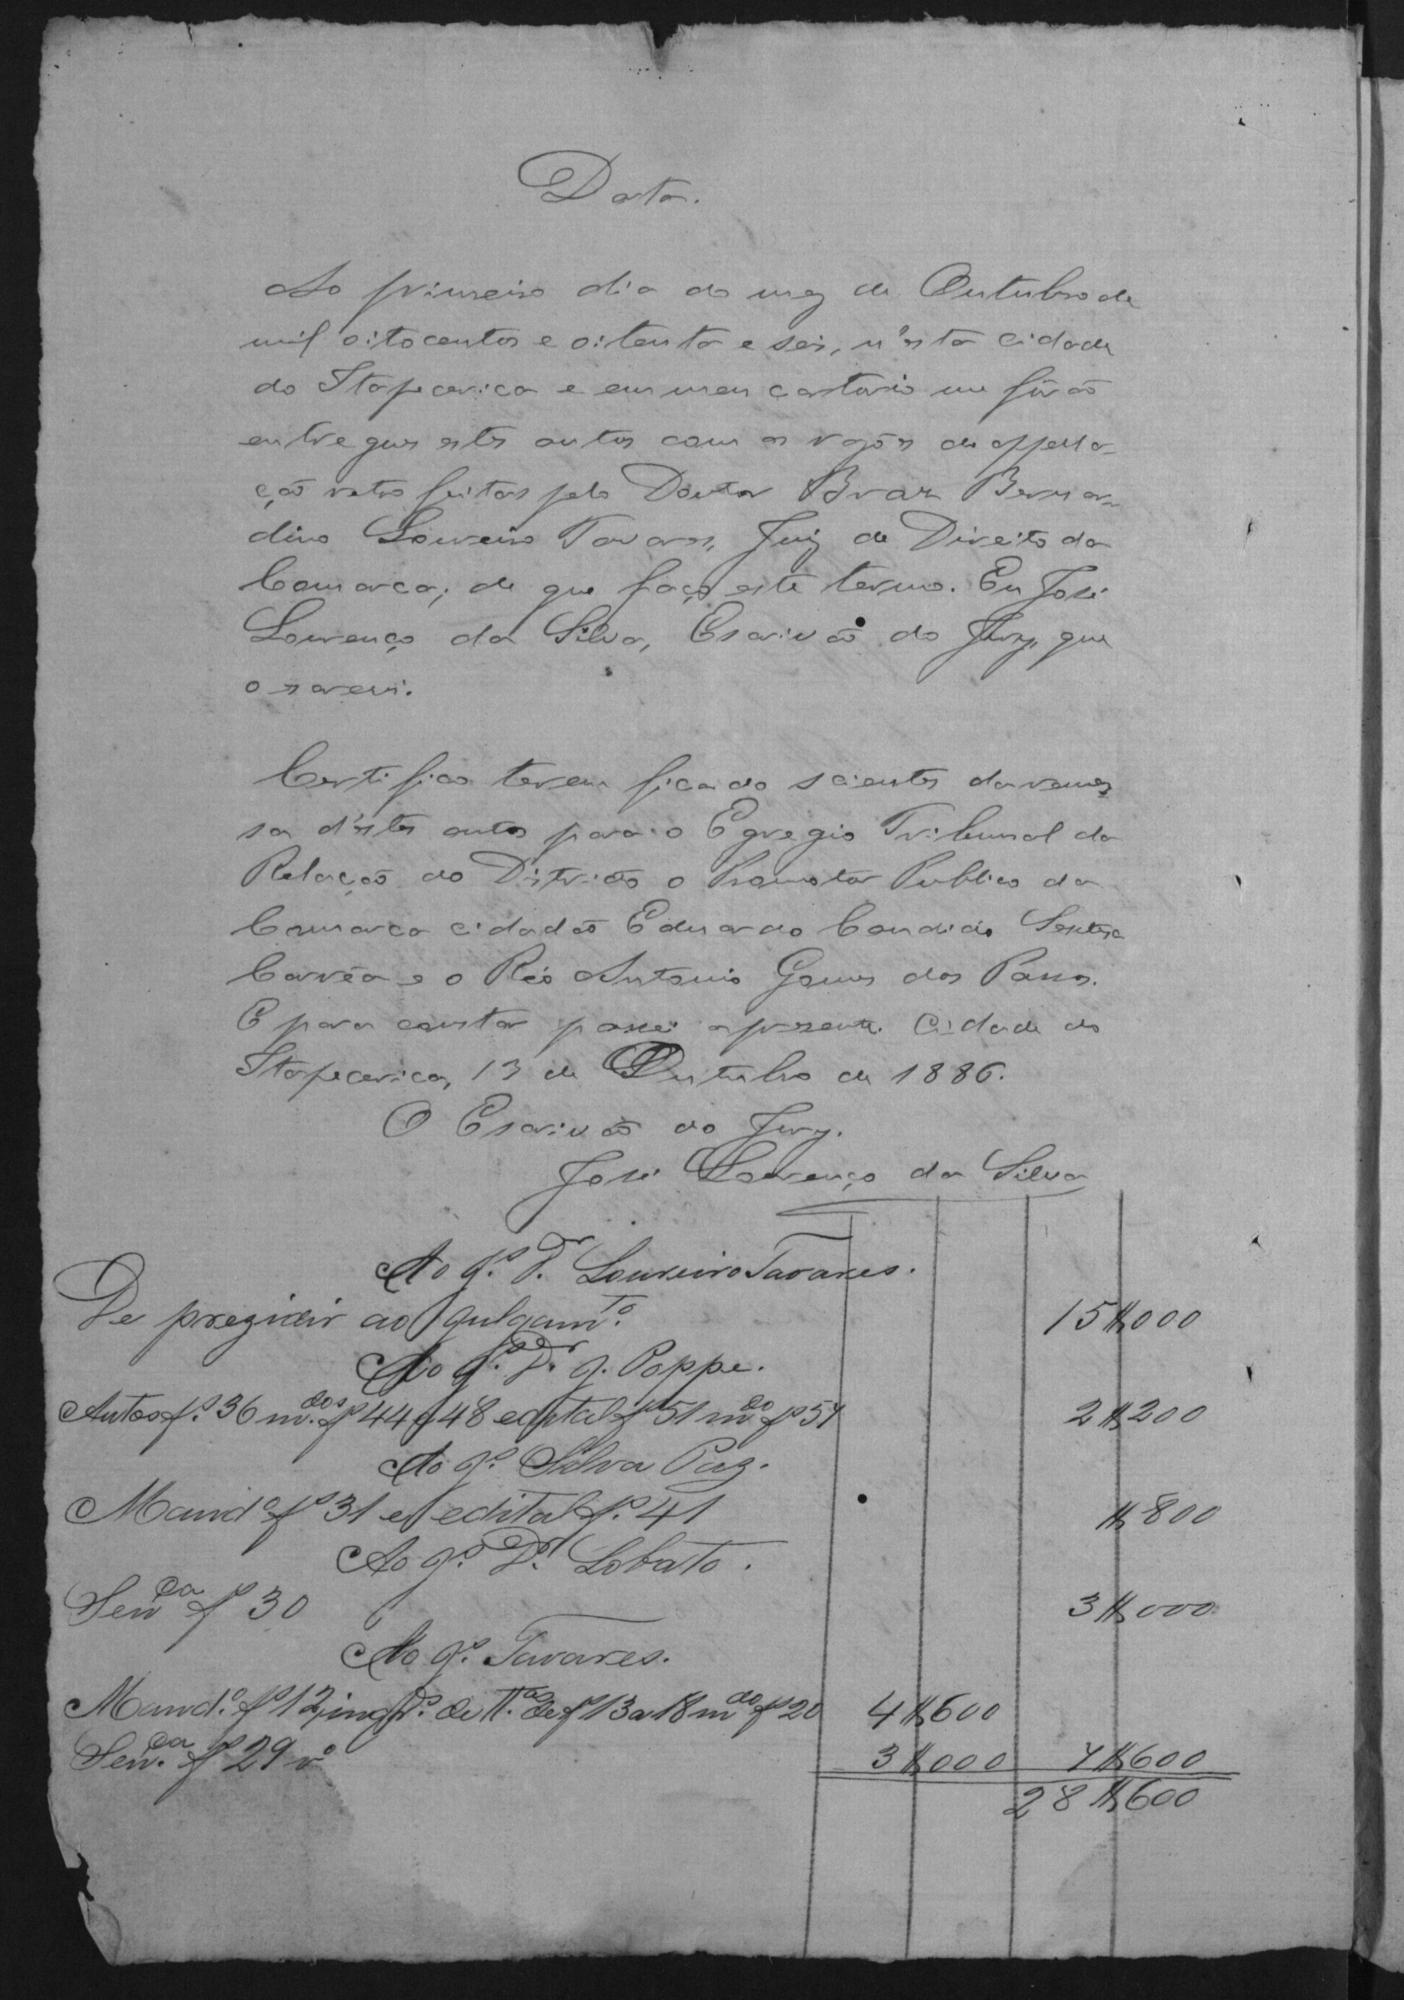 Data.
Ao primeiro dia do mez de Outubro de
mil oitocentos e oitenta e seis, n'esta cidade
do Itapecerica e em meu cartorio me fôrão
entregues estes autos com as rasões de appella-
ção retro feitas pelo Doutor Braz Bernar-
dino Loureiro Tavares, Juiz de Direito da
Comarca; de que faço este termo. Eu José
Lourenço da Silva, Escrivão do Jury, que
o escrevi.
Certifico terem ficado scientes da remes
sa d'estes autos para o Egregio Tribunal da
Relação do Districto o Promotor Publico da
Comarca cidadão Eduardo Candido
Corrêa e o Réo Antonio Gomes dos Passos.
E para constar passei a presente. Cidade do
Itapecerica, 13 de Outubro de 1886.
O Escrivão do Jury.
José Lourenço da Silva
Ao J.º D.r Loureiro Tavares.
De prezidir ao julgam.to 15$000
Ao J.º D.r J. Poppe.
Autos f.s 36 m.dos f.s 44 48 edital f.s 51 m.do f.s 57 2$200
Ao J.º Silva Paz.
Mand.o f.s 31 e edital f.s 41 $800
Ao J.º D.r Lobato.
Sen.ca f.s 30 3$000
Ao J.º Tavares.
Mand.o f.s 12, inq.º de T.as de f.s 13 a 18 m.do f.s 20 4$600
Sen.ca f.s 29 v.º 3$000 7$600
28$600